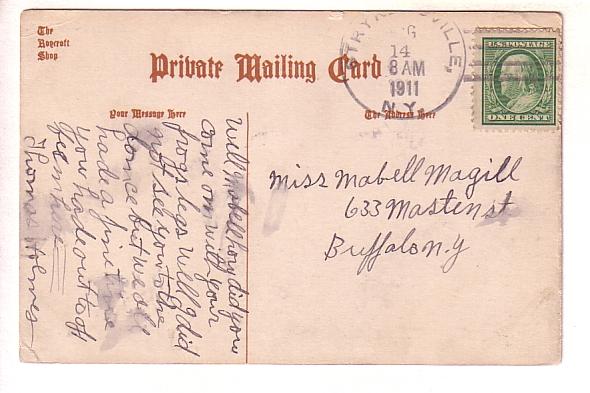 The
Roycroft
Shop
Private Mailing Card
Your Message Here
The Address Here
STRYKERSVILLE,
14
8 AM
1911
N.Y.
U.S. POSTAGE
ONE CENT
Miss Mabell Magill
633 Masten st
Buffalo N.y
Well Mabell how did you
come on with your
frogs legs well I did
not see you to the
dance but we all
had a fine time
you had out to of
Thomas Holmes